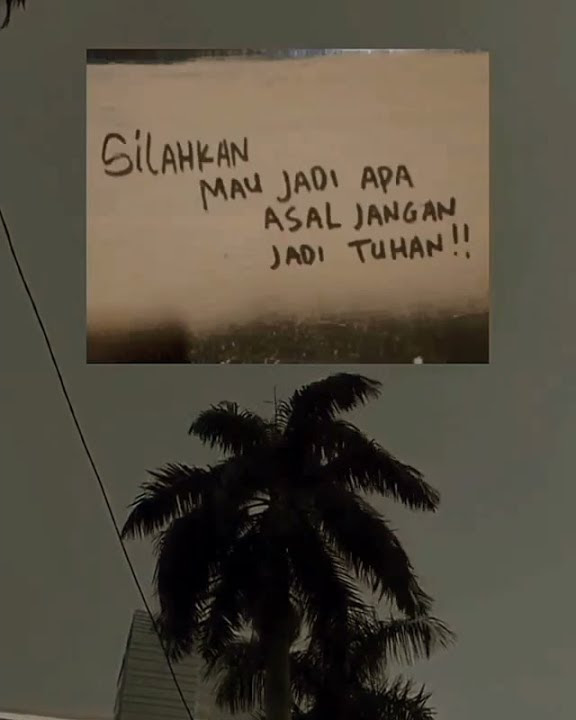 SilAHKAN
MAU JADI APA
ASAL JANGAN
JADI TUHAN!!